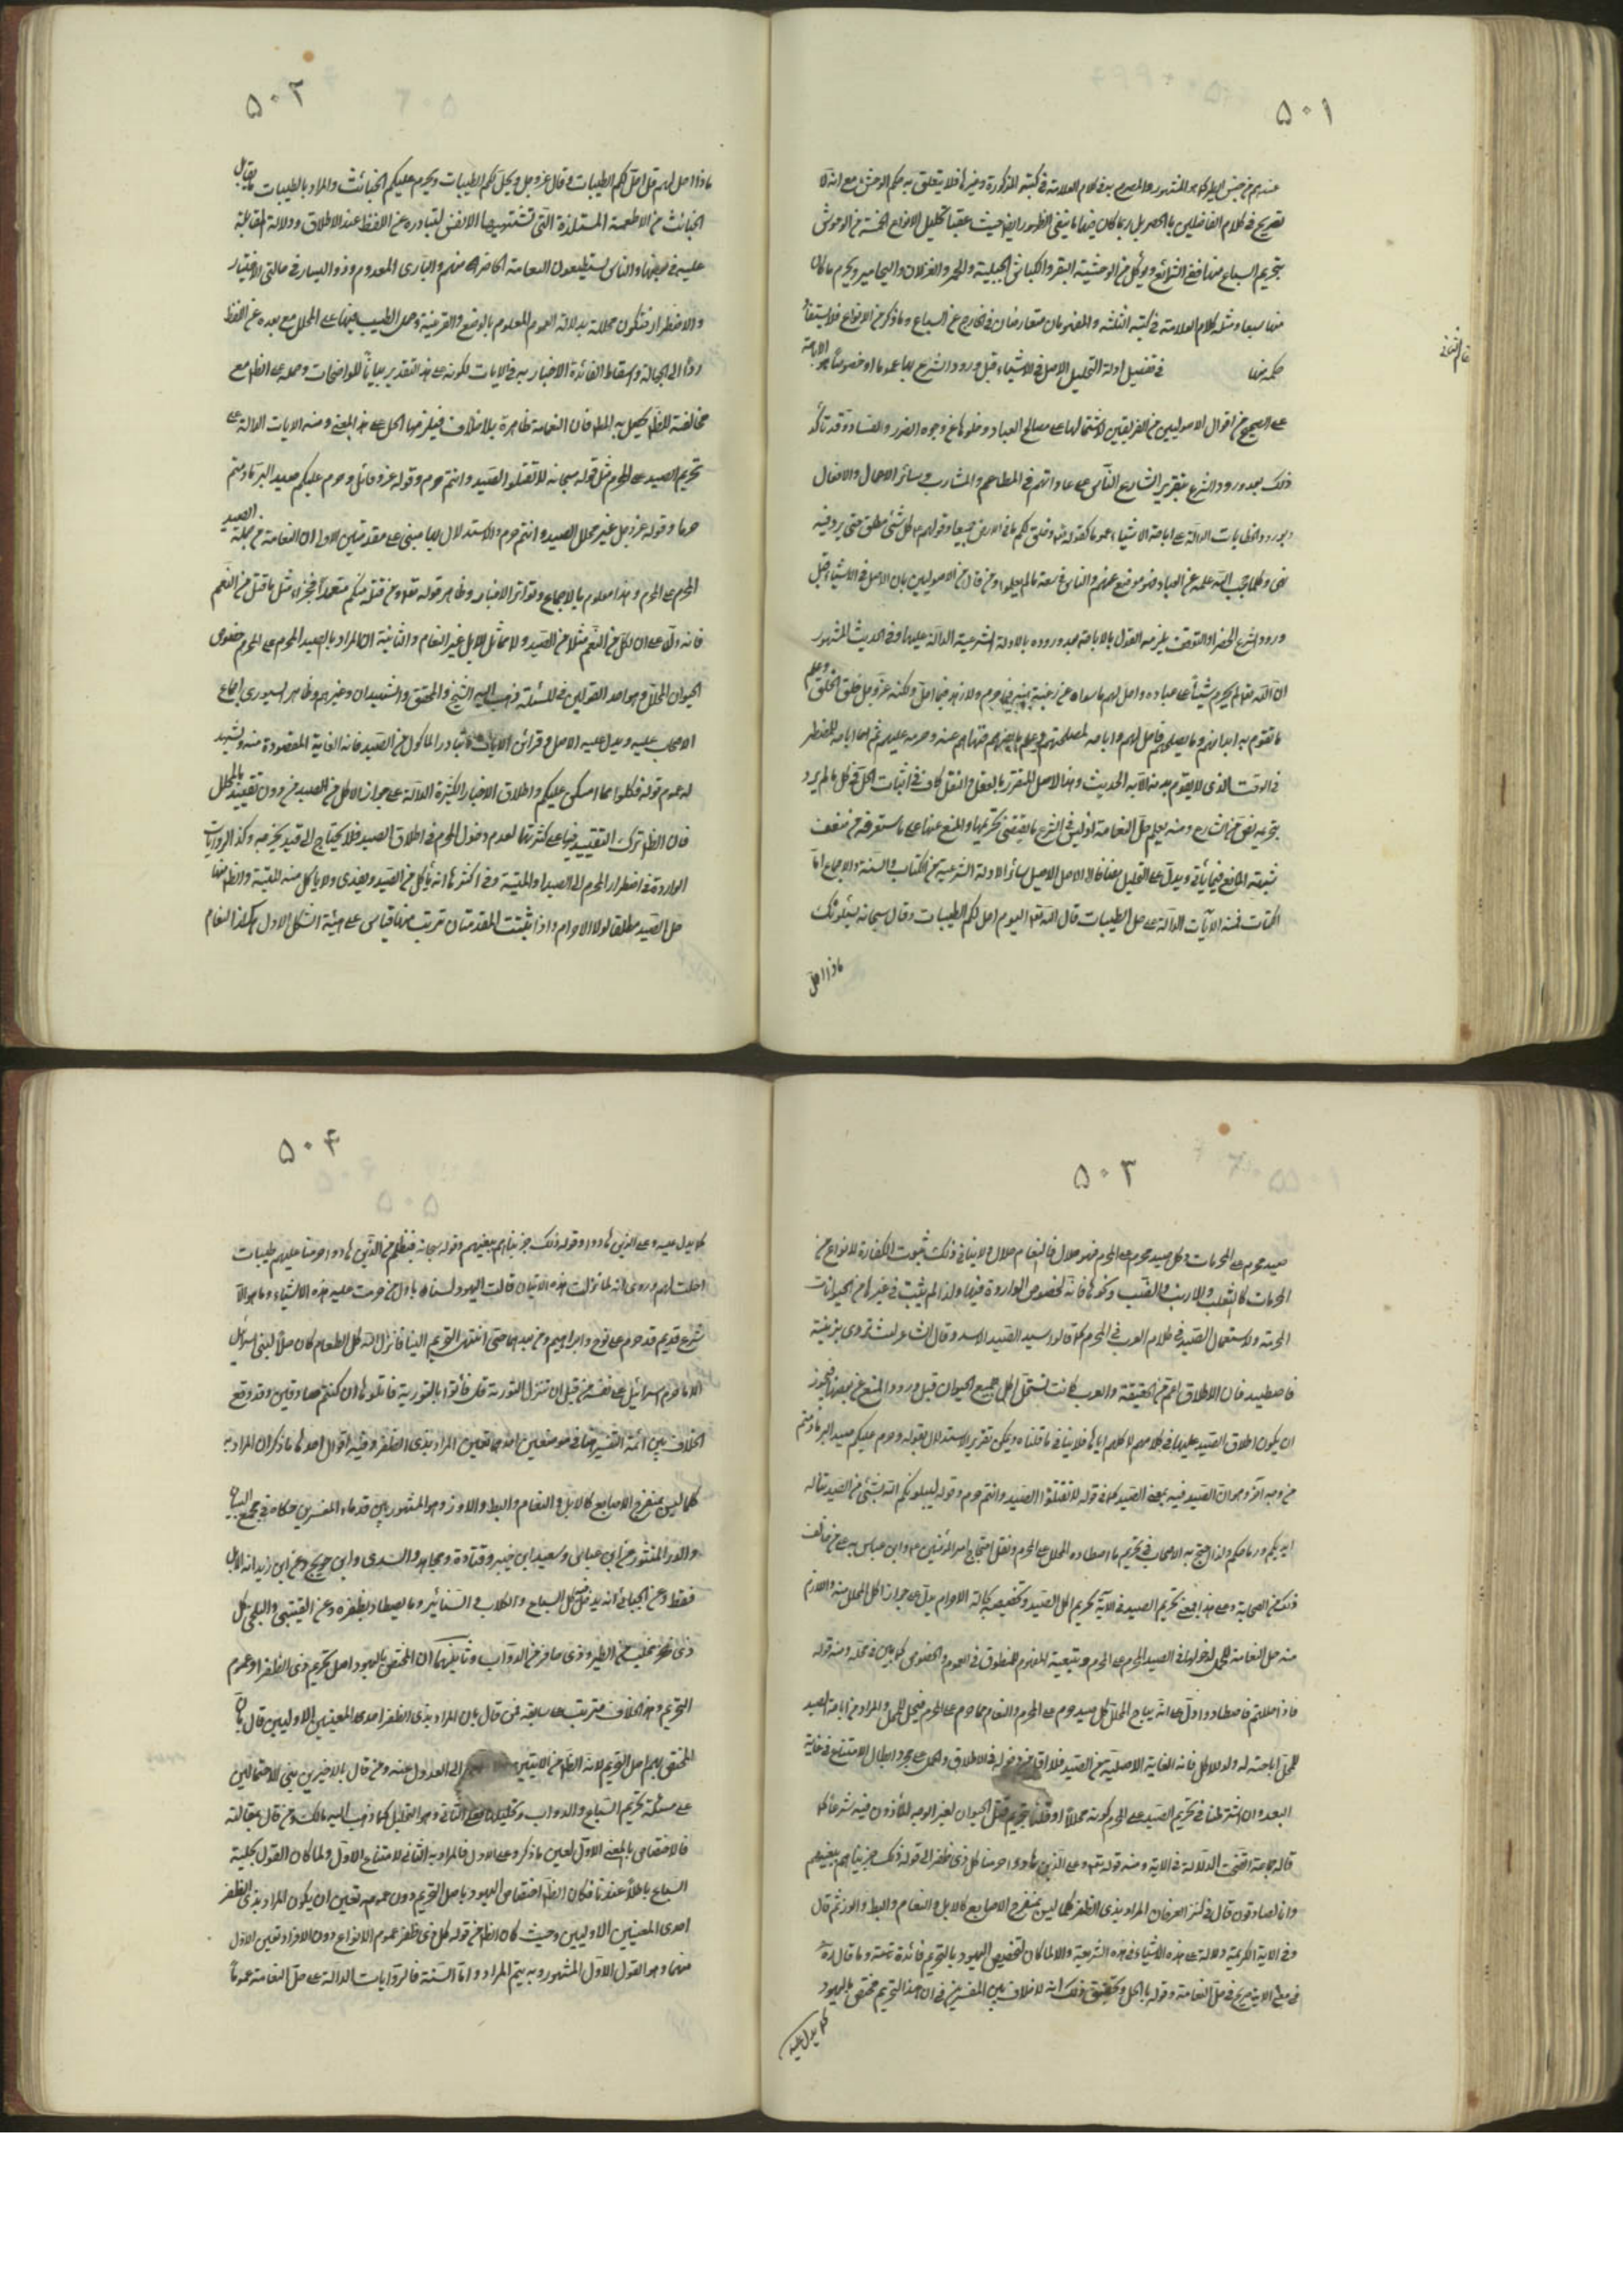 ٥٠١
تصريح في كلام الفاضلين بالحصر بل ربما كان فيهما ما ينفي الظهور ايضا حيث عقبا تحليل الانواع الخمسة من الوحوش
بتحريم السباع منها ففي الشرائع ويؤكل من الوحشية البقر والكباش الجبلية والحمر والغزلان واليحامير ويحرم ما كان
منها سبعا ومثله كلام العلامة في كتبه الثلثة والمفهومان متعارضان في الخارج عن السباع وما ذكر من الانواع فلا يستفاد
حكمه منها في تفصيل ادلة التحليل الاصل في الاشياء قبل ورود الشرع بها عموما او خصوصا هو الاباحة
على الصحيح من اقوال الاصوليين من الفريقين لاشتمالها على مصالح العباد وخلوها عن وجوه الضرر والفساد وقد تأكد
ذلك بعد ورود الشرع بتقرير الشارع الناس على عاداتهم في المطاعم والمشارب وسائر الاعمال والافعال
وبورود الخطابات الدالة على اباحة الاشياء عموما كقوله تعالى وخلق لكم ما في الارض جميعا وقولهم ع كل شئ مطلق حتى يرد فيه
نهى وكلما حجب الله علمه عن العباد فهو موضوع عنهم والناس في سعة ما لم يعلموا ومن قال من الاصوليين بان الاصل في الاشياء قبل
ورود الشرع الحظر او التوقف يلزمه القول بالاباحة بعد وروده بالادلة الشرعية الدالة عليها وفي الحديث المشهور
ان الله تعالى لم يحرم شيئا على عباده واحل لهم ما سواه من رغبة منه فيما حرم ولا زهد فيما احل ولكنه عز وجل خلق الخلق وعلم
ما تقوم به ابدانهم وما يصلحهم فاحل لهم واباحه لمصلحتهم وعلم ما يضرهم فنهاهم عنه وحرمه عليهم ثم اباحه للمضطر
في الوقت الذي لا يقوم بدنه الا به الحديث وهذا الاصل المتقرر بالعقل والنقل كاف في اثبات الحل في كل ما لم يرد
بتحريمه نص من الشارع ومنه يعلم حل النعامة اذ ليس في الشرع ما يقتضي تحريمها والمنع عنها على ما ستعرفه من ضعف
شبهة المانع فيما يأتي ويدل على التحليل مضافا الى الاصل الاصيل سائر الادلة الشرعية من الكتاب والسنة والاجماع اما
الكتاب فمنه الآيات الدالة على حل الطيبات قال الله تعالى اليوم احل لكم الطيبات وقال سبحانه يسئلونك
ماذا احل
٥٠٢
ماذا احل لهم قل احل لكم الطيبات وقال عز وجل ويحل لكم الطيبات ويحرم عليكم الخبائث والمراد بالطيبات ما يقابل
الخبائث من الاطعمة المستلذة التي تشتهيها الانفس لتبادره من اللفظ عند الاطلاق ودلالة المقابلة
عليه في بعضها والناس يستطيبون النعامة الحاضر منهم والبادى والمعدوم وذو اليسار في حالتي الاختيار
والاضطرار فتكون محللة بدلالة العموم المعلوم بالوضع والقرينة وحمل الطيب فيها على المحلل مع بعده عن اللفظ
ردا الى الجهالة واسقاط لفائدة الاخبار به في الايات لكونه على هذا التقدير بيانا للواضحات وحمله على الطاهر مع
مخالفته للظاهر يحصل به المط فان النعامة طاهرة بلا خلاف فيلزمها الحل على هذا المعنى ومنه الايات الدالة على
تحريم الصيد على المحرم مثل قوله سبحانه لا تقتلوا الصيد وانتم حرم وقوله عز من قائل وحرم عليكم صيد البر ما دمتم
حرما وقوله عز وجل غير محلى الصيد وانتم حرم والاستدلال بها مبني على مقدمتين الاولى ان النعامة من جملة الصيد
المحرم على المحرم وهذا معلوم بالاجماع وتواتر الاخبار وظاهر قوله تعالى ومن قتله منكم متعمدا فجزاء مثل ما قتل من النعم
فانه دل على ان لكل من النعم مثلا من الصيد ولا مماثل للابل غير النعام والثانية ان المراد بالصيد المحرم على المحرم خصوص
الحيوان المحلل وهو احد القولين في المسئلة ذهب اليه الشيخ والمحقق والشهيدان وغيرهم وظاهر السيوري اجماع
الاصحاب عليه ويدل عليه الاصل وقرائن الايات وتبادر المأكول من الصيد فانه الغاية المقصودة منه ويشهد
له عموم قوله فكلوا مما امسكن عليكم واطلاق الاخبار الكثيرة الدالة على جواز الاكل من الصيد من دون تقييد بالمحلل
فان الظاهر ترك التقييد فيها على كثرتها لعدم دخول المحرم في اطلاق الصيد فلا يحتاج الى قيد يخرجه وكذا الروايات
الواردة في اضطرار المحرم الى الصيد او الميتة وفي اكثرها انه يأكل من الصيد ويفدى ولا يأكل من الميتة والظاهر منها
حل الصيد مطلقا لولا الاحرام واذا ثبتت المقدمتان ترتب منهما قياس على هيئة الشكل الاول هكذا النعام
٥٠٣
صيد محرم على المحرمات وكل صيد محرم على المحرم فهو حلال فالنعام حلال ولا ينافي ذلك ثبوت الكفارة لانواع من
المحرمات كالثعلب والارنب والضب ونحوها فانه لخصوص الواردة فيها ولذا لم يثبت في غيرها من الحيوانات
المحرمة ولا استعمال الصيد في كلام العرب في المحرم كما قالوا سيد الصيد الاسد وقال الشاعر ليث تردى زبية
فاصطيد فان الاطلاق اعم من الحقيقة والعرب كانت تستحل اكل جميع الحيوان قبل ورود المنع عن بعضها فيجوز
ان يكون اطلاق الصيد عليها في كلامهم لاكلهم اياها فلا ينافي ما قلناه ويمكن تقرير الاستدلال بقوله وحرم عليكم صيد البر ما دمتم
من وجه آخر وهو ان الصيد فيه بمعنى المصيد كما في قوله لا تقتلوا الصيد وانتم حرم وقوله ليبلونكم الله بشئ من الصيد تناله
ايديكم ورماحكم ولذا احتج به الاصحاب في تحريم ما اصطاده المحلل على المحرم ونقل احتجاج امير المؤمنين ع وابن عباس به على من خالف
ذلك من الصحابة وعلى هذا فمعنى تحريم الصيد في الآية تحريم اكل الصيد وتخصيصه بحالة الاحرام يدل على جواز اكل المحلل منه واللازم
منه حل النعامة للمحل لدخولها في الصيد المحرم على المحرم وتبعية المفهوم للمنطوق في العموم والخصوص كما بين في محله ومنه قوله
فاذا حللتم فاصطادوا دل على انه يباح للمحلل كل صيد حرم على المحرم والنعام مما حرم على المحرم فيحل للمحل والمراد من اباحة الصيد
للمحل اباحته له ولو للاكل فانه الغاية الاصلية من الصيد فلا اقل من دخوله في الاطلاق والحمل على مجرد ابطال الامتناع في غاية
البعد وان اشترطنا في تحريم الصيد على المحرم كونه محللا او قلنا بتحريم قتل الحيوان لغير الوجه المأذون فيه شرعا كما
قاله جماعة اتضحت الدلالة في الآية ومنه قوله تعالى وعلى الذين هادوا حرمنا كل ذي ظفر الى قوله ذلك جزيناهم ببغيهم
وانا لصادقون قال في كنز العرفان المراد بذي الظفر كلما ليس بمنفرج الاصابع كالابل والنعام والبط والاوز ثم قال
وفي الاية الكريمة دلالة على حل هذه الاشياء في هذه الشريعة والا لما كان لتخصيص اليهود بالتحريم فائدة تمت وما قاله
في معنى الاية صريح في حل النعامة وقوله بالحل وتحقيق ذلك انه لا خلاف بين المفسرين في ان هذا التحريم مختص باليهود
كما يدل عليه
٥٠٤
كما يدل عليه وعلى الذين هادوا وقوله ذلك جزيناهم ببغيهم وقوله سبحانه فبظلم من الذين هادوا حرمنا عليهم طيبات
احلت لهم وروى انه لما نزلت هذه الايتان قالت اليهود لسنا باول من حرمت عليه هذه الاشياء وما هو الا
شرع قديم قد حرم على نوح وابراهيم ومن بعدهما حتى انتهى التحريم الينا فانزل الله كل الطعام كان حلا لبني اسرائيل
الا ما حرم اسرائيل على نفسه من قبل ان تنزل التورية قل فأتوا بالتورية فاتلوها ان كنتم صادقين وقد وقع
الخلاف بين ائمة التفسير هنا في موضعين احدهما تعيين المراد بذي الظفر وفيه اقوال احدها ما ذكر ان المراد به
كلما ليس بمنفرج الاصابع كالابل والنعام والبط والاوز وهو المشهور بين قدماء المفسرين حكاه في مجمع البيان
والدر المنثور عن ابن عباس وسعيد ابن جبير وقتادة ومجاهد والسدى وابن جريج وعن ابن زيد انه الابل
فقط وعن الجبائي انه يدخل كل السباع والكلاب والسنانير وما يصطاد بظفره وعن القتيبي والبلخي كل
ذي مخلب من الطير وذي حافر من الدواب وثانيهما ان المختص باليهود اصل تحريم ذي الظفر او عموم
التحريم وهذا الخلاف مترتب على سابقه فمن قال بان المراد بذي الظفر احدى المعنيين الاوليين قال بان
المختص بهم اصل التحريم لانه الظاهر من الايتين الى العدول عنه ومن قال بالاخيرين بنى الاحتمالين
على مسئلة تحريم السباع والدواب وتحليلها فعلى الثاني وهو التحليل كما ذهب اليه مالك ومن قال بمقالته
فالاختصاص بالمعنى الاول لعين ما ذكر وعلى الاول فالمراد به الثاني لامتناع الاول ولما كان القول بحلية
السباع باطلا عندنا فكان الظاهر اختصاص اليهود باصل التحريم دون عمومه تعين ان يكون المراد بذي الظفر
احدى المعنيين الاوليين وحيث كان الظاهر من قوله كل ذي ظفر عموم الانواع دون الافراد تعين الاول
منهما وهو القول الاول المشهور وبه يتم المراد واما السنة فالروايات الدالة على حل النعامة عموما